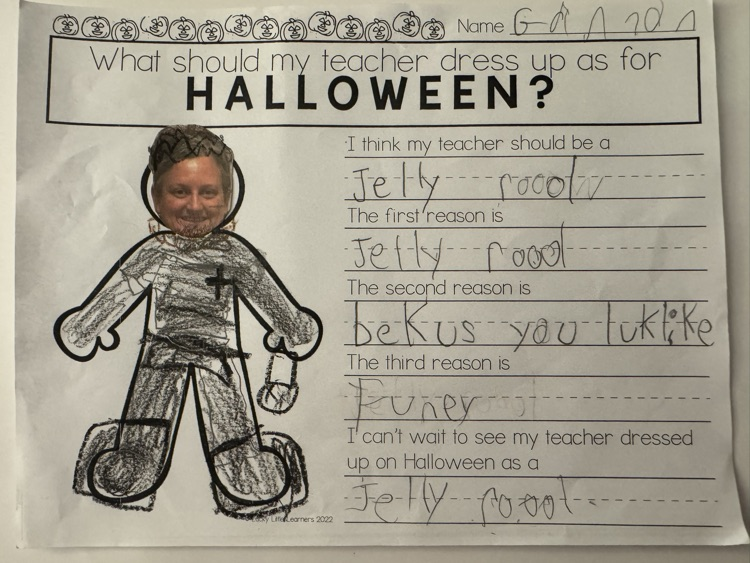 Name G
What should my teacher dress up as for
HALLOWEEN?
I think my teacher should be a
Jelly roool
The first reason is
Jelly roool
The second reason is
beKus you luklike
The third reason is
Funey
I can't wait to see my teacher dressed
up on Halloween as a
Jelly roool.
Lucky Little Learners 2022